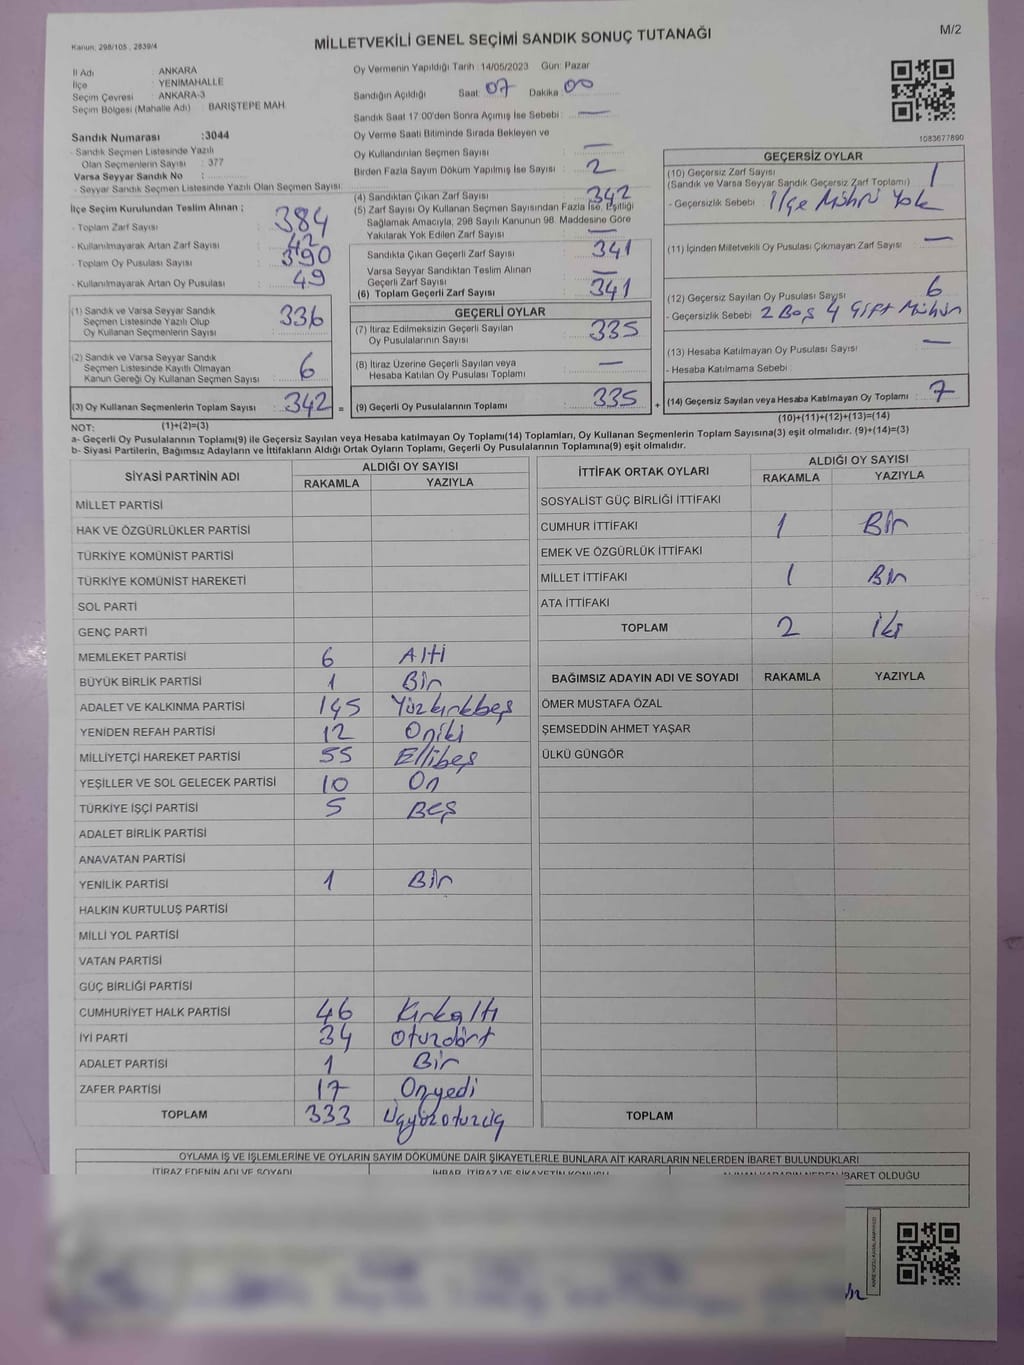 Kanun: 298/105 , 2839/4
MİLLETVEKİLİ GENEL SEÇİMİ SANDIK SONUÇ TUTANAĞI
M/2
İl Adı : ANKARA
İlçe : YENİMAHALLE
Seçim Çevresi : ANKARA-3
Seçim Bölgesi (Mahalle Adı) : BARIŞTEPE MAH.
Sandık Numarası :3044
- Sandık Seçmen Listesinde Yazılı
Olan Seçmenlerin Sayısı : 377
Varsa Seyyar Sandık No :
- Seyyar Sandık Seçmen Listesinde Yazılı Olan Seçmen Sayısı:
İlçe Seçim Kurulundan Teslim Alınan ;
- Toplam Zarf Sayısı : 384
- Kullanılmayarak Artan Zarf Sayısı : 42
- Toplam Oy Pusulası Sayısı : 390
- Kullanılmayarak Artan Oy Pusulası : 49
(1) Sandık ve Varsa Seyyar Sandık
Seçmen Listesinde Yazılı Olup
Oy Kullanan Seçmenlerin Sayısı : 336
(2) Sandık ve Varsa Seyyar Sandık
Seçmen Listesinde Kayıtlı Olmayan
Kanun Gereği Oy Kullanan Seçmen Sayısı : 6
(3) Oy Kullanan Seçmenlerin Toplam Sayısı : 342 =
Oy Vermenin Yapıldığı Tarih :14/05/2023 Gün: Pazar
Sandığın Açıldığı Saat: 07 Dakika: 00
Sandık Saat 17:00'den Sonra Açılmış İse Sebebi : —
Oy Verme Saati Bitiminde Sırada Bekleyen ve
Oy Kullandırılan Seçmen Sayısı : —
Birden Fazla Sayım Döküm Yapılmış İse Sayısı : 2
(4) Sandıktan Çıkan Zarf Sayısı : 342
(5) Zarf Sayısı Oy Kullanan Seçmen Sayısından Fazla İse, Eşitliği
Sağlamak Amacıyla, 298 Sayılı Kanunun 98. Maddesine Göre
Yakılarak Yok Edilen Zarf Sayısı : —
Sandıkta Çıkan Geçerli Zarf Sayısı : 341
Varsa Seyyar Sandıktan Teslim Alınan
Geçerli Zarf Sayısı : —
(6) Toplam Geçerli Zarf Sayısı : 341
GEÇERLİ OYLAR
(7) İtiraz Edilmeksizin Geçerli Sayılan
Oy Pusulalarının Sayısı : 335
(8) İtiraz Üzerine Geçerli Sayılan veya
Hesaba Katılan Oy Pusulası Toplamı : —
(9) Geçerli Oy Pusulalarının Toplamı : 335 +
1083677890
GEÇERSİZ OYLAR
(10) Geçersiz Zarf Sayısı : 1
(Sandık ve Varsa Seyyar Sandık Geçersiz Zarf Toplamı)
- Geçersizlik Sebebi : İlçe Mührü Yok
(11) İçinden Milletvekili Oy Pusulası Çıkmayan Zarf Sayısı : —
(12) Geçersiz Sayılan Oy Pusulası Sayısı : 6
- Geçersizlik Sebebi : 2 Boş 4 Çift Mühür
(13) Hesaba Katılmayan Oy Pusulası Sayısı : —
- Hesaba Katılmama Sebebi :
(14) Geçersiz Sayılan veya Hesaba Katılmayan Oy Toplamı : 7
(10)+(11)+(12)+(13)=(14)
NOT: (1)+(2)=(3)
a- Geçerli Oy Pusulalarının Toplamı(9) ile Geçersiz Sayılan veya Hesaba katılmayan Oy Toplamı(14) Toplamları, Oy Kullanan Seçmenlerin Toplam Sayısına(3) eşit olmalıdır. (9)+(14)=(3)
b- Siyasi Partilerin, Bağımsız Adayların ve İttifakların Aldığı Ortak Oyların Toplamı, Geçerli Oy Pusulalarının Toplamına(9) eşit olmalıdır.
SİYASİ PARTİNİN ADI ALDIĞI OY SAYISI
RAKAMLA YAZIYLA
MİLLET PARTİSİ
HAK VE ÖZGÜRLÜKLER PARTİSİ
TÜRKİYE KOMÜNİST PARTİSİ
TÜRKİYE KOMÜNİST HAREKETİ
SOL PARTİ
GENÇ PARTİ
MEMLEKET PARTİSİ 6 Altı
BÜYÜK BİRLİK PARTİSİ 1 Bir
ADALET VE KALKINMA PARTİSİ 145 Yüzkırkbeş
YENİDEN REFAH PARTİSİ 12 Oniki
MİLLİYETÇİ HAREKET PARTİSİ 55 Ellibeş
YEŞİLLER VE SOL GELECEK PARTİSİ 10 On
TÜRKİYE İŞÇİ PARTİSİ 5 Beş
ADALET BİRLİK PARTİSİ
ANAVATAN PARTİSİ
YENİLİK PARTİSİ 1 Bir
HALKIN KURTULUŞ PARTİSİ
MİLLİ YOL PARTİSİ
VATAN PARTİSİ
GÜÇ BİRLİĞİ PARTİSİ
CUMHURİYET HALK PARTİSİ 46 Kırkaltı
İYİ PARTİ 34 Otuzdört
ADALET PARTİSİ 1 Bir
ZAFER PARTİSİ 17 Onyedi
TOPLAM 333 Üçyüzotuzüç
İTTİFAK ORTAK OYLARI ALDIĞI OY SAYISI
RAKAMLA YAZIYLA
SOSYALİST GÜÇ BİRLİĞİ İTTİFAKI
CUMHUR İTTİFAKI 1 Bir
EMEK VE ÖZGÜRLÜK İTTİFAKI
MİLLET İTTİFAKI 1 Bir
ATA İTTİFAKI
TOPLAM 2 İki
BAĞIMSIZ ADAYIN ADI VE SOYADI RAKAMLA YAZIYLA
ÖMER MUSTAFA ÖZAL
ŞEMSEDDİN AHMET YAŞAR
ÜLKÜ GÜNGÖR
TOPLAM
OYLAMA İŞ VE İŞLEMLERİNE VE OYLARIN SAYIM DÖKÜMÜNE DAİR ŞİKAYETLERLE BUNLARA AİT KARARLARIN NELERDEN İBARET BULUNDUKLARI
İTİRAZ EDENİN ADI VE SOYADI İHBAR, İTİRAZ VE ŞİKAYETİN KONUSU ALINAN KARARIN NEDEN İBARET OLDUĞU